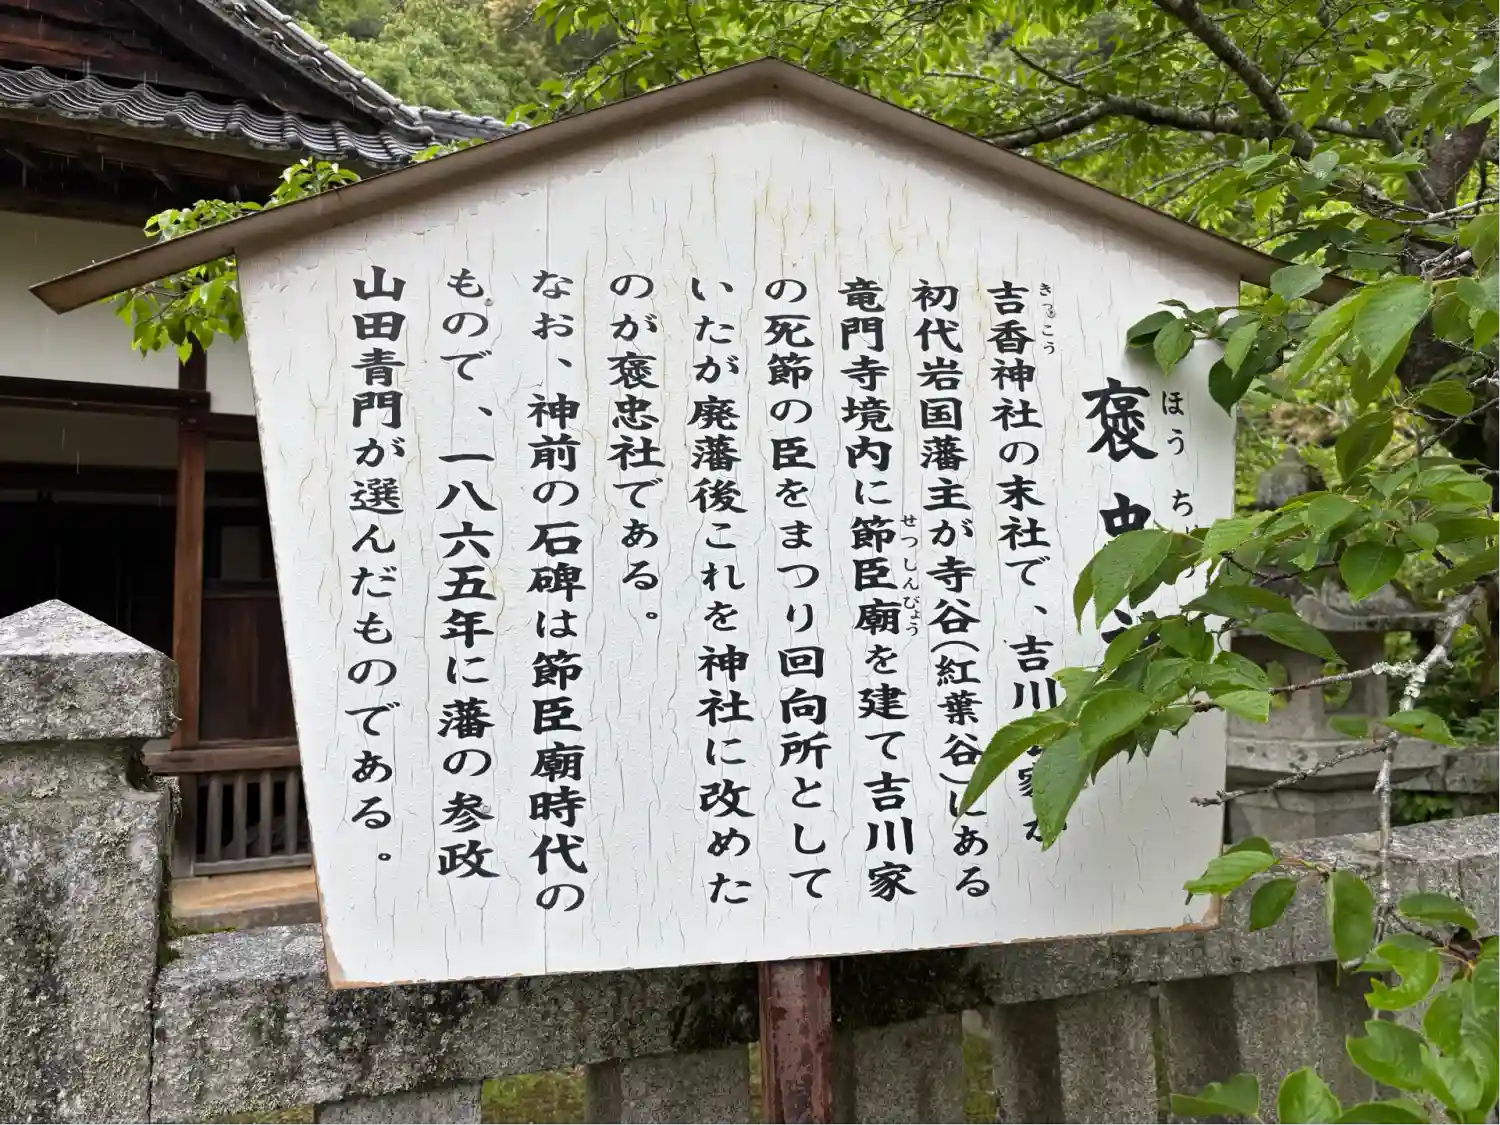 褒忠
ほうち
吉香神社の末社で、吉川家が
きっこう
初代岩国藩主が寺谷(紅葉谷)にある
竜門寺境内に節臣廟を建て吉川家
せつしんびょう
の死節の臣をまつり回向所として
いたが廃藩後これを神社に改めた
のが褒忠社である。
なお、神前の石碑は節臣廟時代の
もので、一八六五年に藩の参政
山田青門が選んだものである。